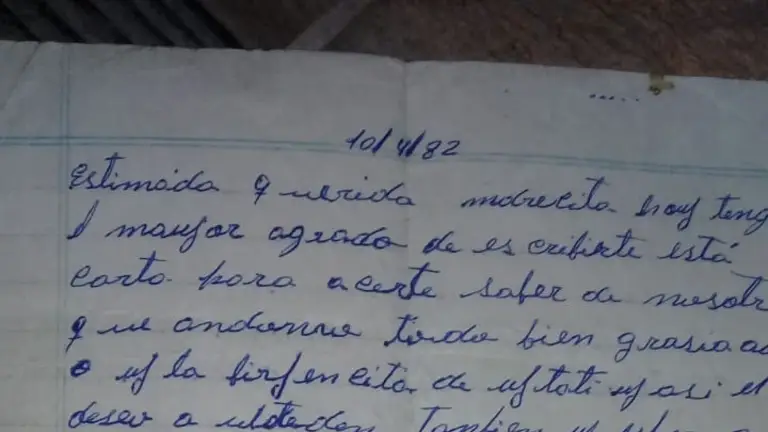 10/4/82
Estimada querida mdrecita hoy teng
l mayor agrado de escribirte está
carta para acerte saber de nosotr
que andamo todo bien grasia a
o y la birjencita de y asi el
deseo a tanbien